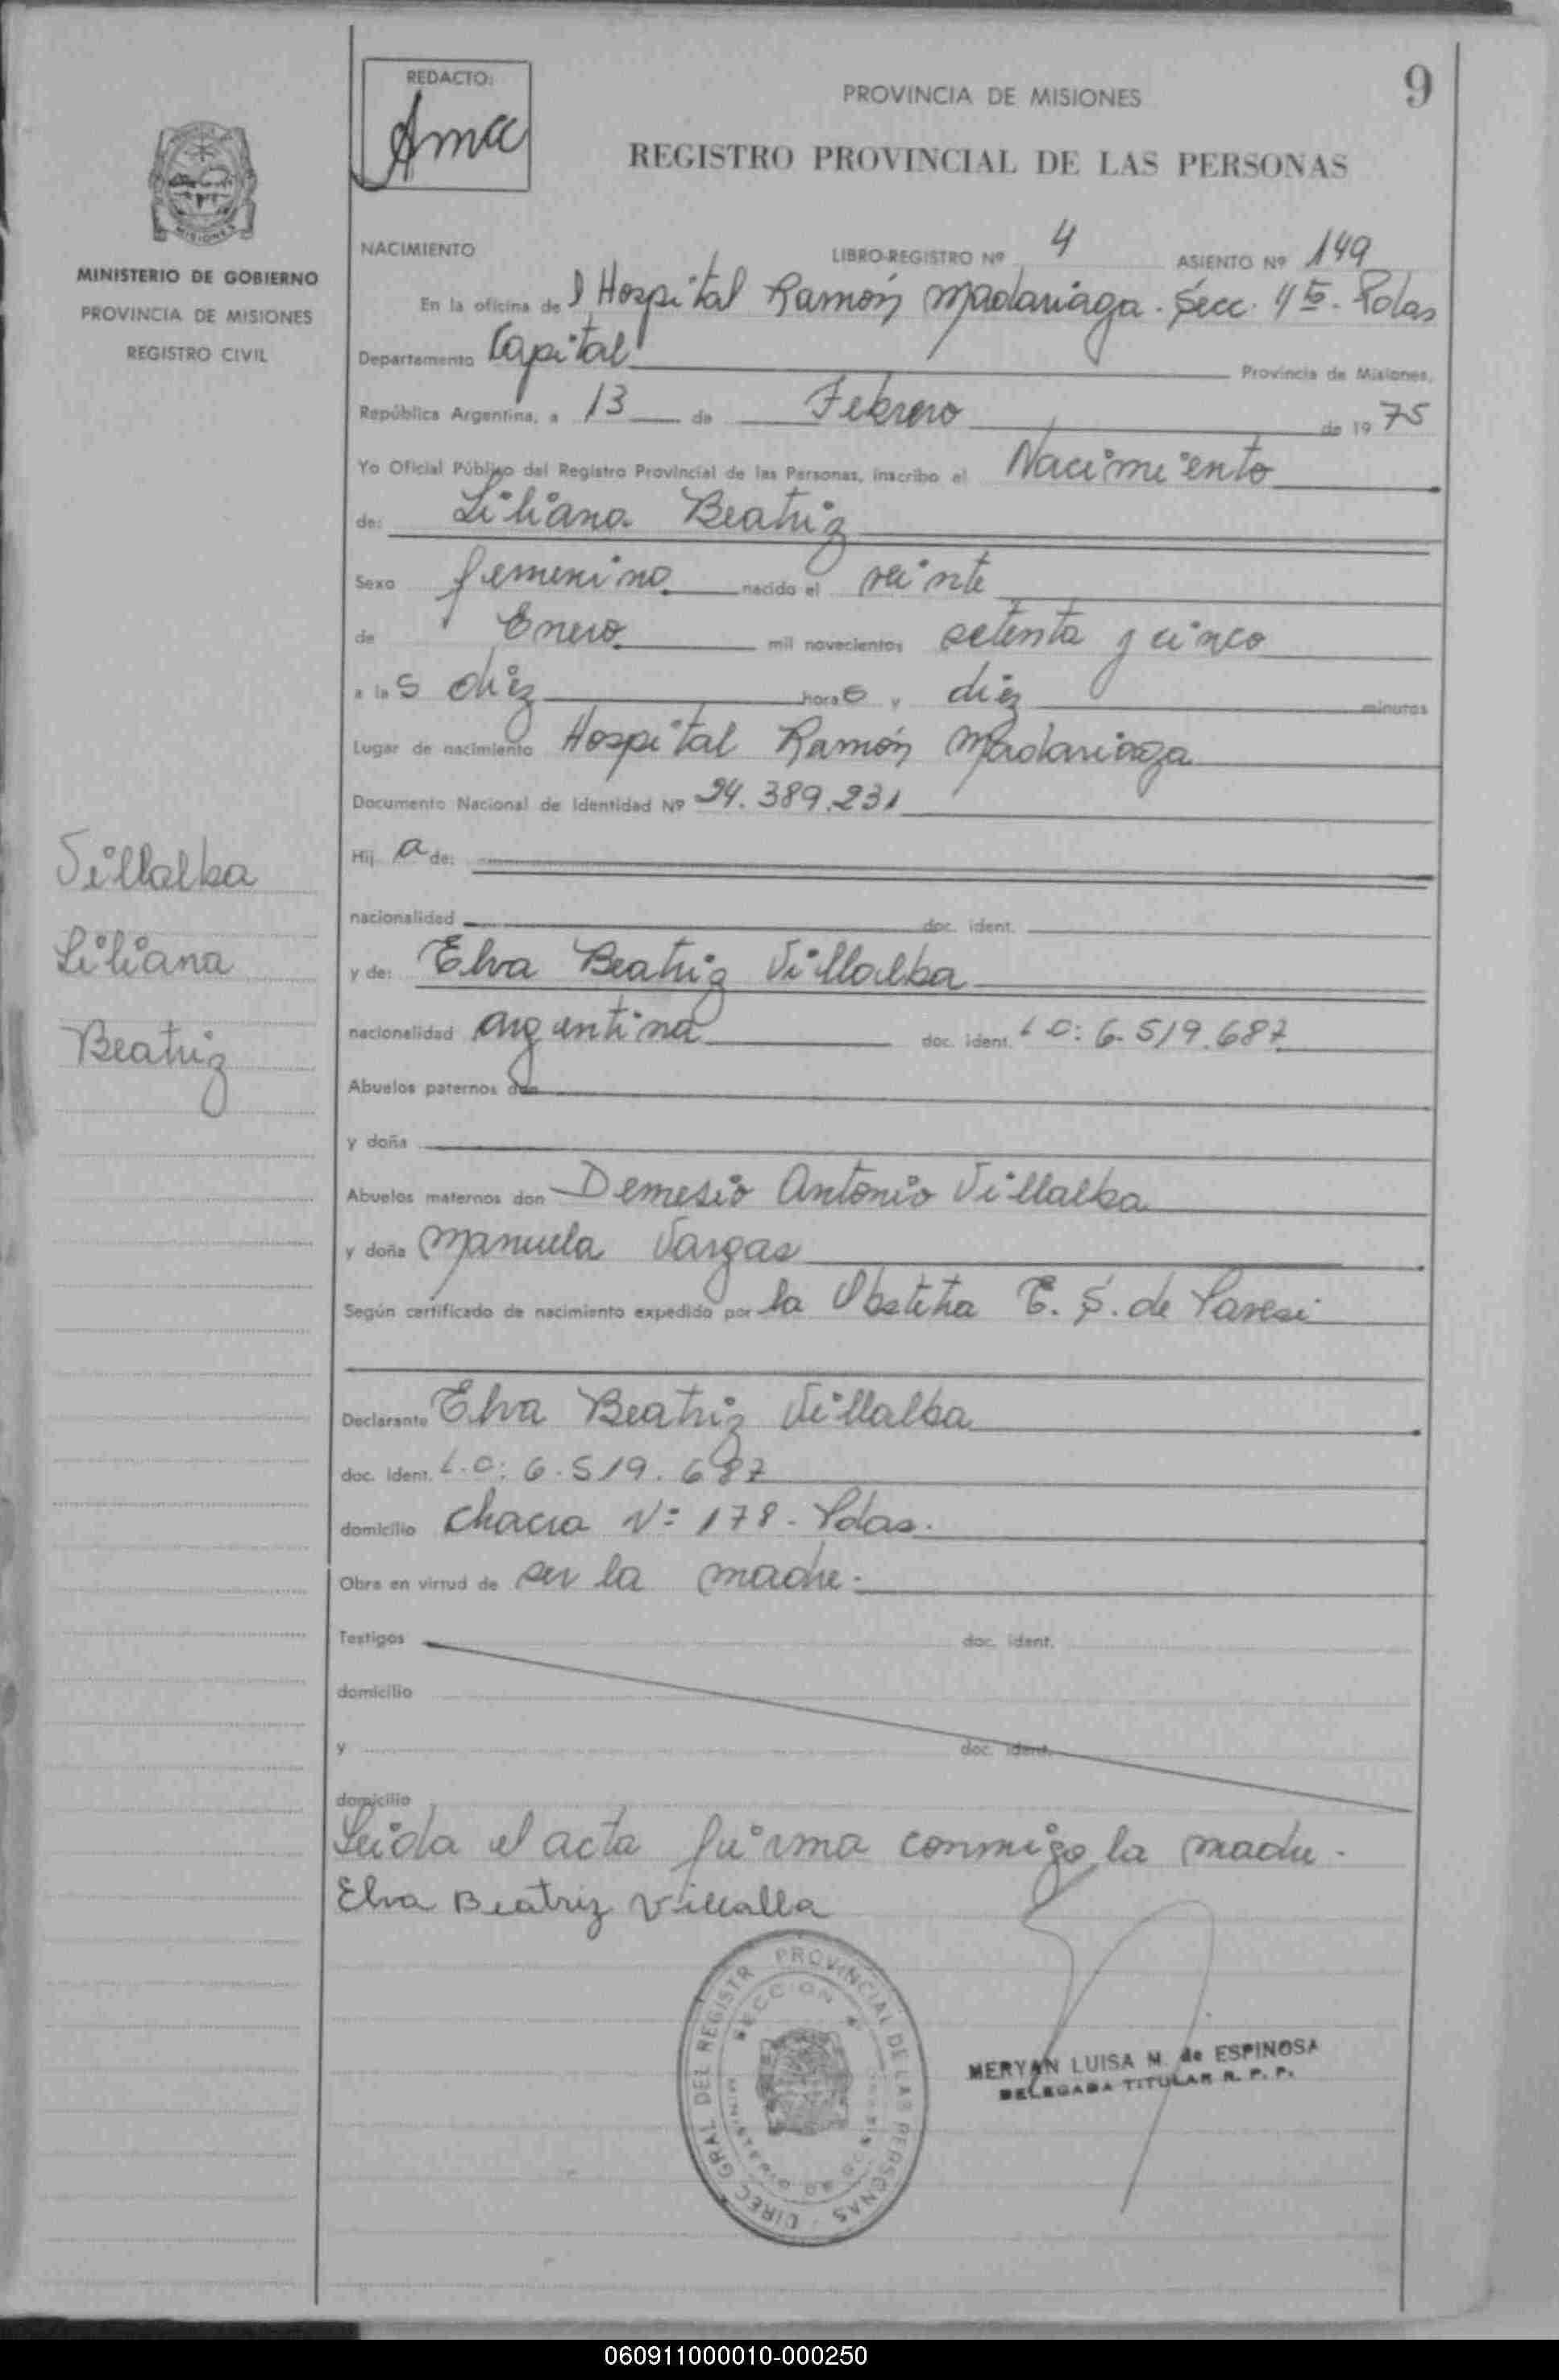 9
REDACTO:
Ama
PROVINCIA DE MISIONES
REGISTRO PROVINCIAL DE LAS PERSONAS
MINISTERIO DE GOBIERNO
PROVINCIA DE MISIONES
REGISTRO CIVIL
NACIMIENTO LIBRO-REGISTRO Nº 4 ASIENTO Nº 149
En la oficina del Hospital Ramón Madariaga. Secc. 4ta. Pdas
Departamento Capital Provincia de Misiones,
República Argentina, a 13 de Febrero de 1975
Yo Oficial Público del Registro Provincial de las Personas, inscribo el Nacimiento
de: Liliana Beatriz
Sexo femenino nacido el veinte
de Enero mil novecientos setenta y cinco
a las diez horas y diez minutos
Lugar de nacimiento Hospital Ramón Madariaga
Documento Nacional de Identidad Nº 24.389.231
Hija de:
nacionalidad doc. ident.
y de: Elva Beatriz Villalba
nacionalidad argentina doc. ident. L C: 6.519.687
Abuelos paternos don
y doña
Abuelos maternos don Demesio Antonio Villalba
y doña Manuela Vargas
Según certificado de nacimiento expedido por la Obstetra E. S. de
Declarante Elva Beatriz Villalba
doc. ident. L.C: 6.519.687
domicilio Chacra Nº 178 - Pdas.
Obra en virtud de ser la madre.
Testigos doc. ident.
domicilio
y doc. ident.
domicilio
Leida el acta firma conmigo la madre.
Elva Beatriz Villalba
Villalba
Liliana
Beatriz
DIREC. GRAL. DEL REGISTR. PROVINCIAL DE LAS PERSONAS
SECCION
MINISTERIO DE GOBIERNO
MERYAN LUISA M. de ESPINOSA
DELEGADA TITULAR R. P. P.
060911000010-000250